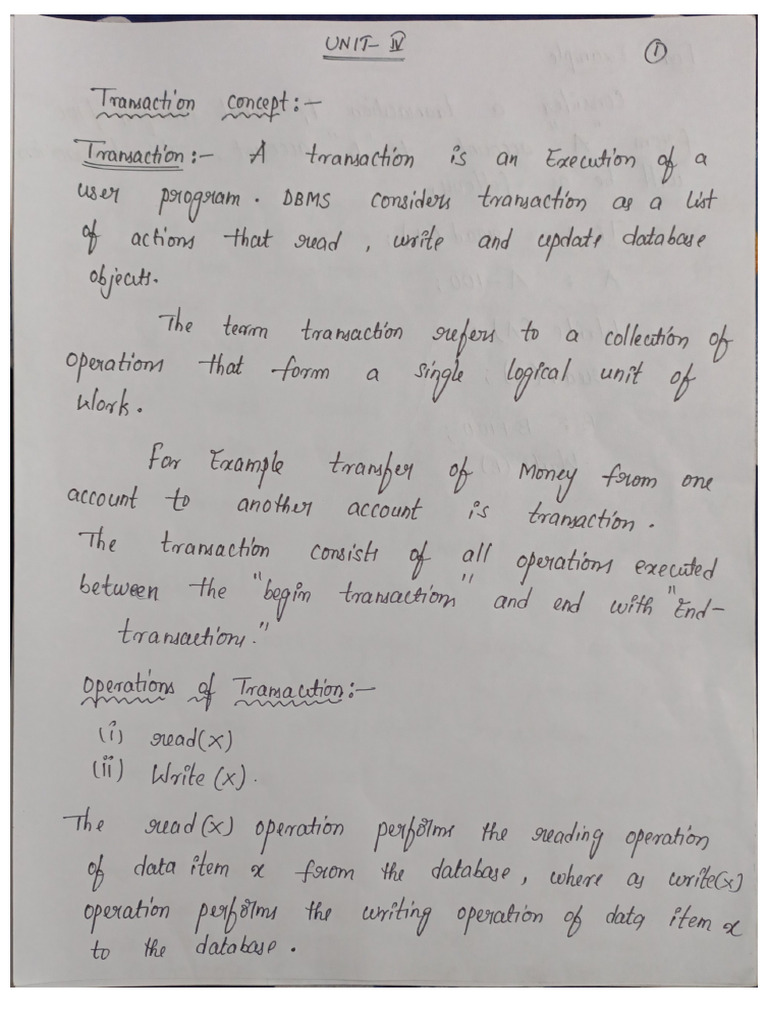 UNIT- IV
1
Transaction concept:-
Transaction:- A transaction is an Execution of a
user program. DBMS considers transaction as a list
of actions that read, write and update database
objects.
The term transaction refers to a collection of
operations that form a single logical unit of
work.
For Example transfer of Money from one
account to another account is transaction.
The transaction consists of all operations executed
between the "begin transaction" and end with "End-
transactions."
Operations of Transaction:-
(i) read(x)
(ii) Write (x).
The read(x) operation performs the reading operation
of data item x from the database, where as write(x)
operation performs the writing operation of data item x
to the database.